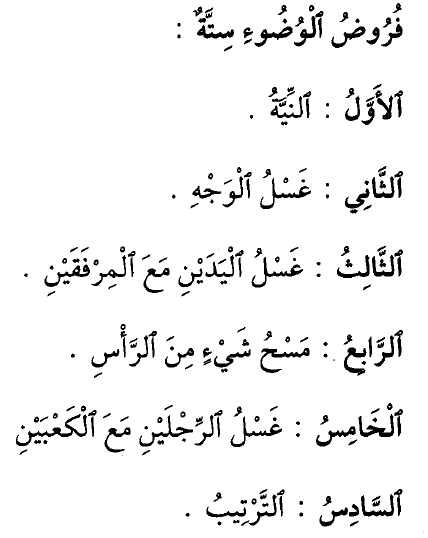 فُرُوضُ ٱلْوُضُوءِ سِتَّةٌ :
ٱلأَوَّلُ : ٱلنِّيَّةُ .
ٱلثَّانِي : غَسْلُ ٱلْوَجْهِ .
ٱلثَّالِثُ : غَسْلُ ٱلْيَدَيْنِ مَعَ ٱلْمِرْفَقَيْنِ .
ٱلرَّابِعُ : مَسْحُ شَيْءٍ مِنَ ٱلرَّأْسِ .
ٱلْخَامِسُ : غَسْلُ ٱلرِّجْلَيْنِ مَعَ ٱلْكَعْبَيْنِ
ٱلسَّادِسُ : ٱلتَّرْتِيبُ .